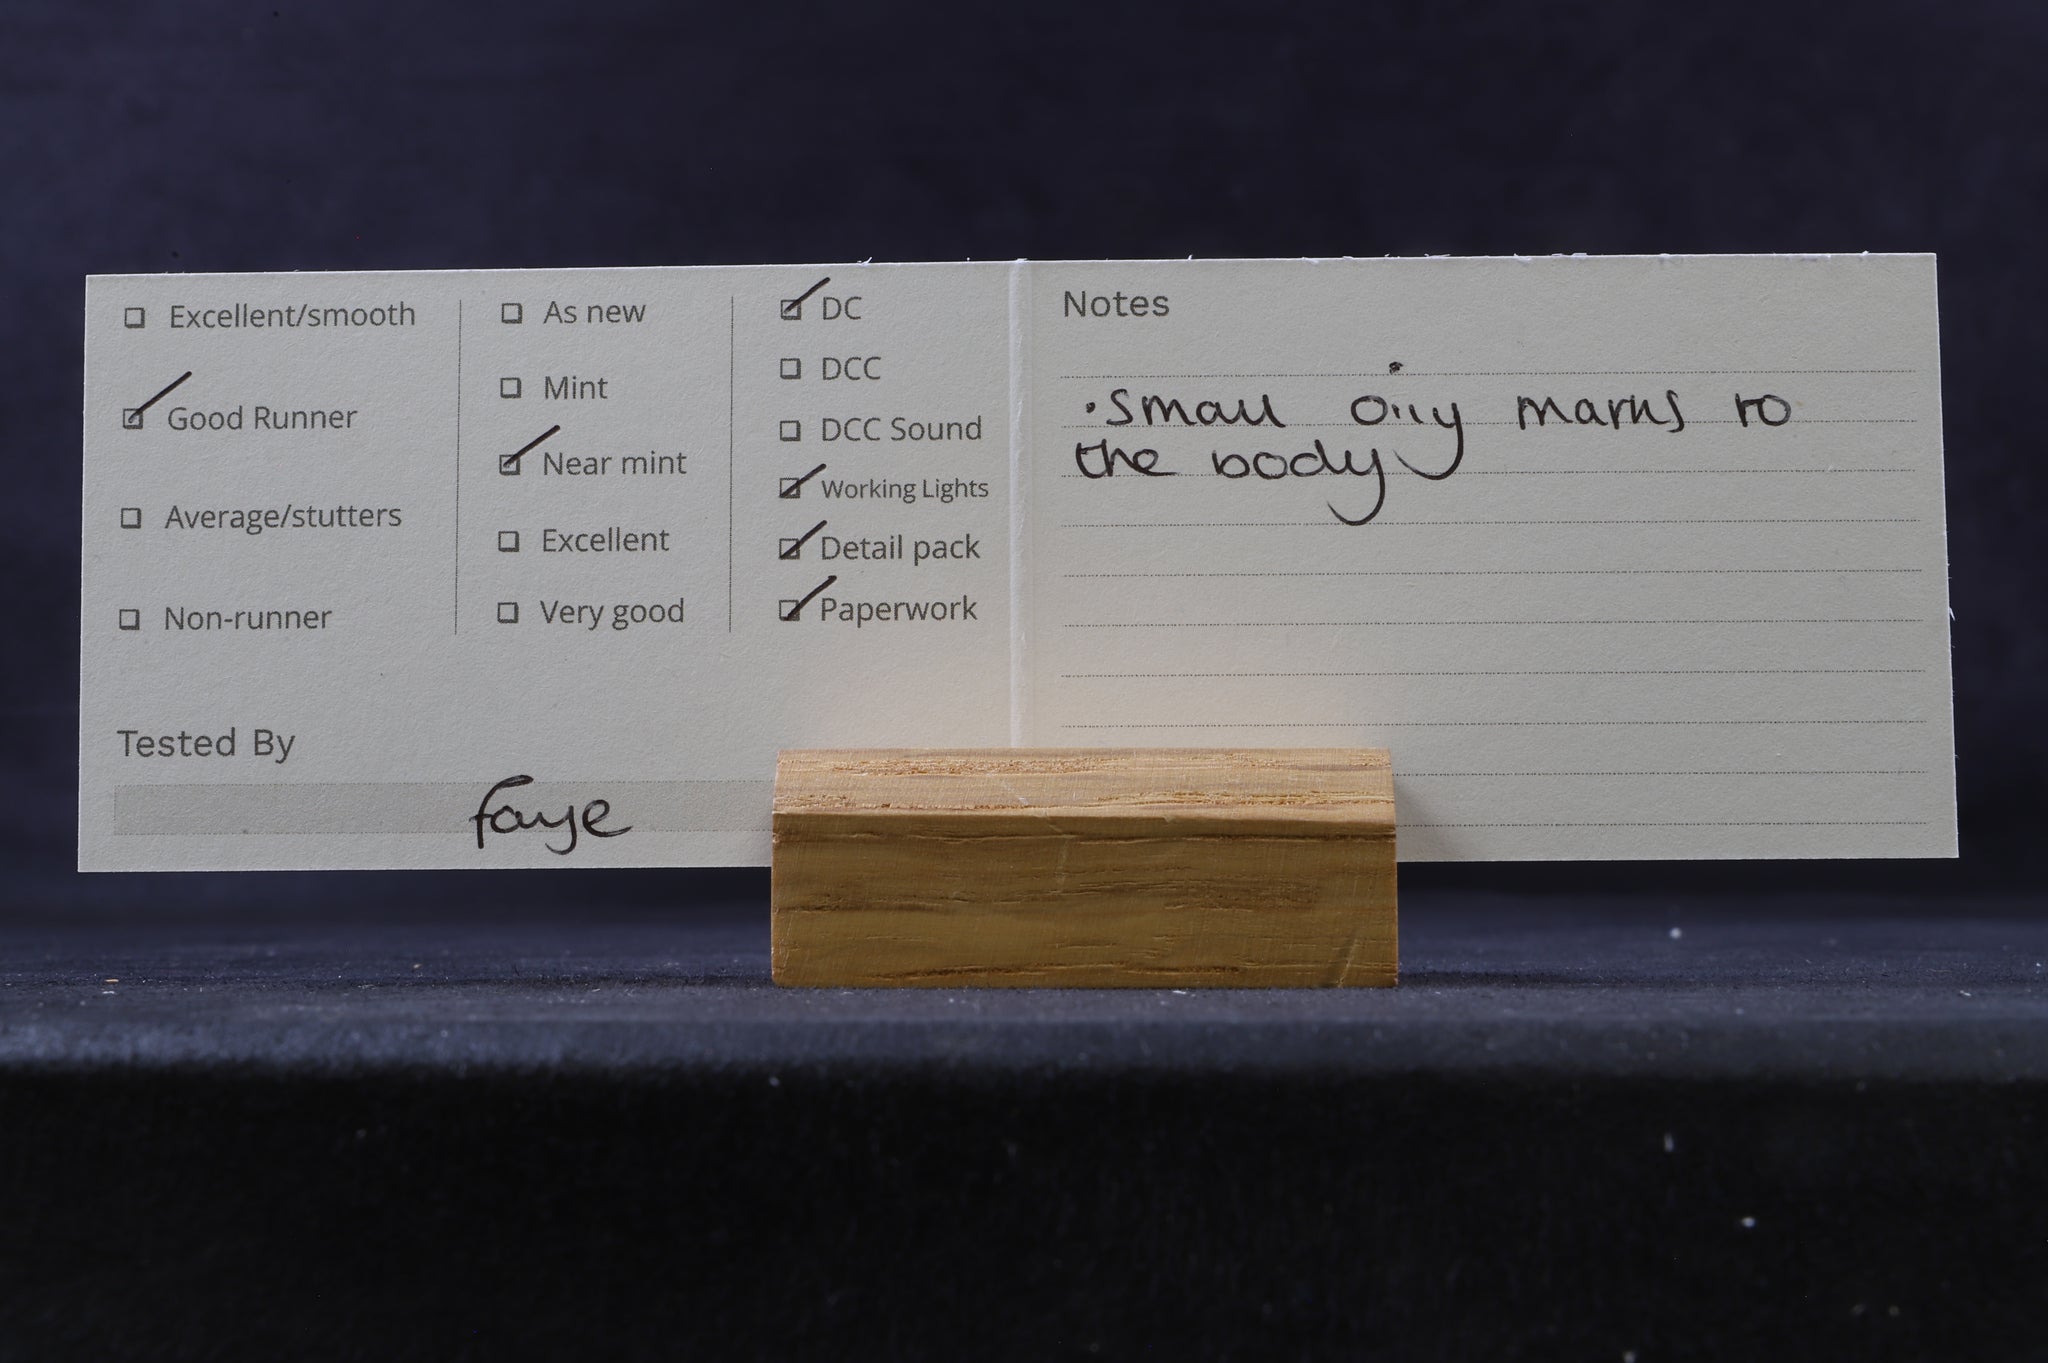 Excellent/smooth
Good Runner
Average/stutters
Non-runner
As new
Mint
Near mint
Excellent
Very good
DC
DCC
DCC Sound
Working Lights
Detail pack
Paperwork
Tested By
faye
Notes
• small oily marks to
the body